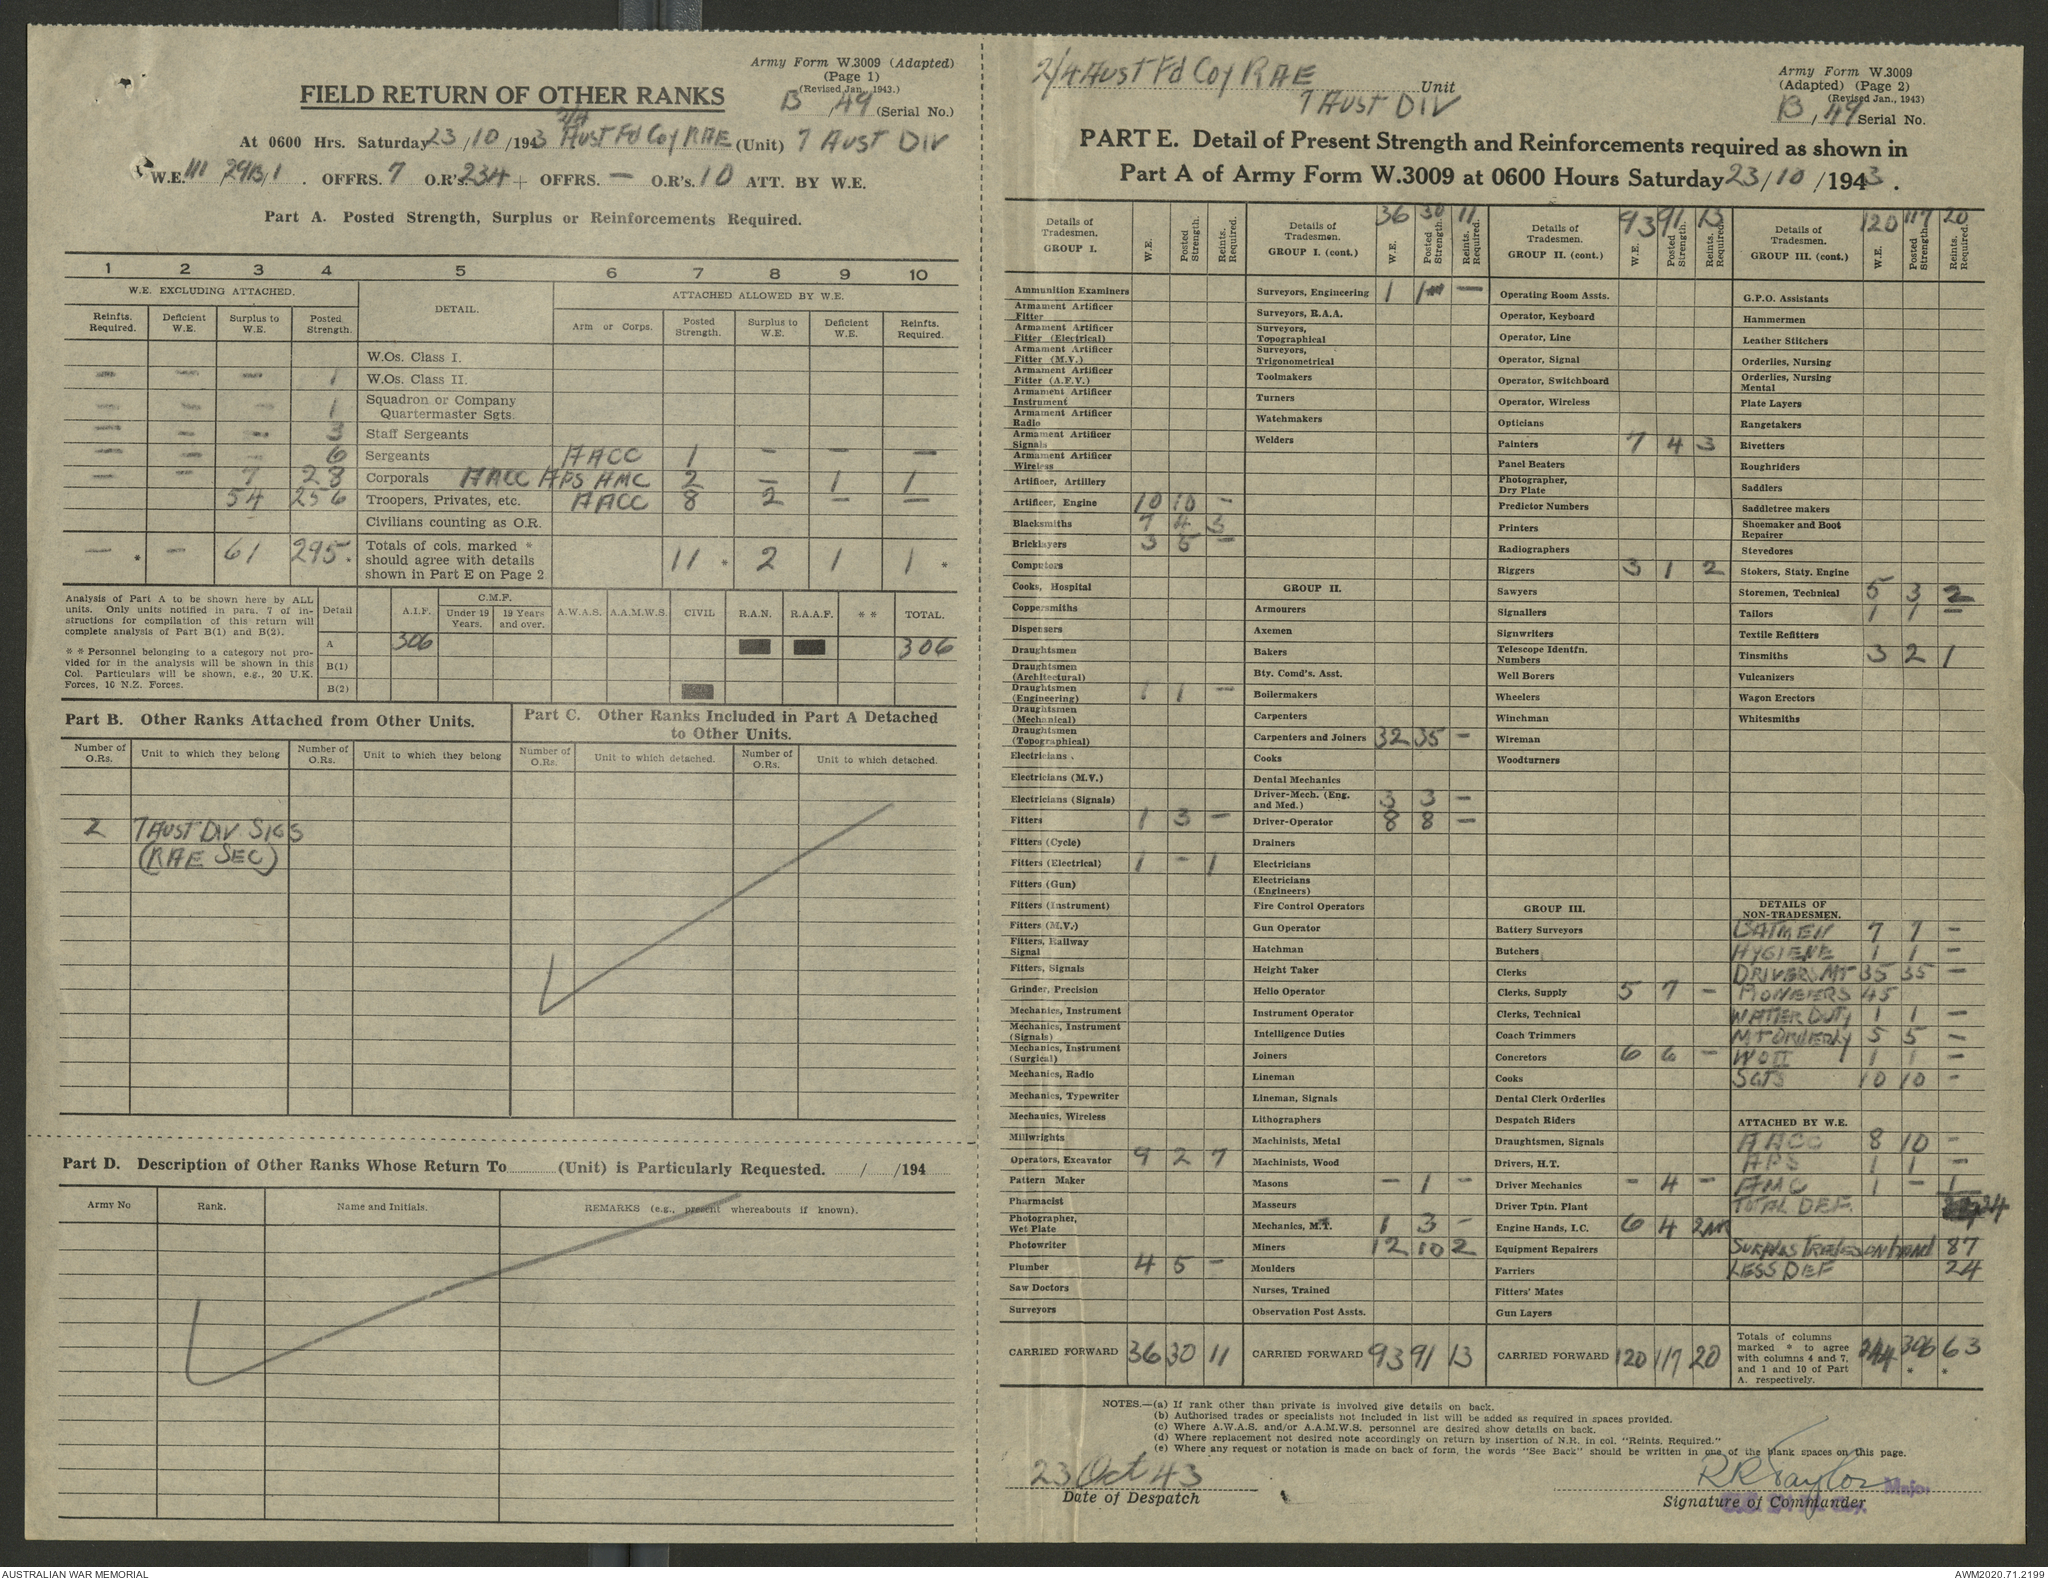 Army Form W.3009 (Adapted)
(Page 1)
(Revised Jan., 1943.)
FIELD RETURN OF OTHER RANKS
B, 49 (Serial No.)
At 0600 Hrs. Saturday 23/10/1943 2/4 Aust Fd Coy RAE (Unit) 7 AUST DIV
W.E. III /29B/1 . OFFRS. 7 O.R's. 234 + OFFRS. — O.R's. 10 ATT. BY W.E.
Part A. Posted Strength, Surplus or Reinforcements Required.
1 2 3 4 5 6 7 8 9 10
W.E. EXCLUDING ATTACHED. DETAIL. ATTACHED ALLOWED BY W.E.
Reinfts. Required. Deficient W.E. Surplus to W.E. Posted Strength. Arm or Corps. Posted Strength. Surplus to W.E. Deficient W.E. Reinfts. Required.
W.Os. Class I.
— — — 1 W.Os. Class II.
— — — 1 Squadron or Company Quartermaster Sgts.
— — — 3 Staff Sergeants
— — — 6 Sergeants AACC 1 — — —
— — 7 28 Corporals AACC APS AMC 2 — 1 1
54 256 Troopers, Privates, etc. AACC 8 2 — —
Civilians counting as O.R.
— * — 61 295. Totals of cols. marked * should agree with details shown in Part E on Page 2 11 * 2 1 1 *
Analysis of Part A to be shown here by ALL units. Only units notified in para. 7 of instructions for compilation of this return will complete analysis of Part B(1) and B(2).
* * Personnel belonging to a category not provided for in the analysis will be shown in this Col. Particulars will be shown, e.g., 20 U.K. Forces, 10 N.Z. Forces.
Detail A.I.F. C.M.F. Under 19 Years. 19 Years and over. A.W.A.S. A.A.M.W.S. CIVIL R.A.N. R.A.A.F. * * TOTAL.
A 306 306
B(1)
B(2)
Part B. Other Ranks Attached from Other Units.
Part C. Other Ranks Included in Part A Detached to Other Units.
Number of O.Rs. Unit to which they belong Number of O.Rs. Unit to which they belong Number of O.Rs. Unit to which detached. Number of O.Rs. Unit to which detached.
2 7 AUST DIV SIGS
(RAE SEC)
Part D. Description of Other Ranks Whose Return To ........ (Unit) is Particularly Requested. / /194
Army No Rank. Name and Initials. REMARKS (e.g., present whereabouts if known).
2/4 Aust Fd Coy RAE Unit
7 AUST DIV
Army Form W.3009
(Adapted) (Page 2)
(Revised Jan., 1943)
B, 49 Serial No.
PART E. Detail of Present Strength and Reinforcements required as shown in
Part A of Army Form W.3009 at 0600 Hours Saturday 23/10/1943.
Details of Tradesmen. GROUP I. W.E. Posted Strength. Reints. Required.
Ammunition Examiners
Armament Artificer Fitter
Armament Artificer Fitter (Electrical)
Armament Artificer Fitter (M.V.)
Armament Artificer Fitter (A.F.V.)
Armament Artificer Instrument
Armament Artificer Radio
Armament Artificer Signals
Armament Artificer Wireless
Artificer, Artillery
Artificer, Engine 10 10 —
Blacksmiths 7 4 3
Bricklayers 3 5 —
Computors
Cooks, Hospital
Coppersmiths
Dispensers
Draughtsmen
Draughtsmen (Architectural)
Draughtsmen (Engineering) 1 1 —
Draughtsmen (Mechanical)
Draughtsmen (Topographical)
Electricians .
Electricians (M.V.)
Electricians (Signals)
Fitters 1 3 —
Fitters (Cycle)
Fitters (Electrical) 1 — 1
Fitters (Gun)
Fitters (Instrument)
Fitters (M.V.)
Fitters, Railway Signal
Fitters, Signals
Grinder, Precision
Mechanics, Instrument
Mechanics, Instrument (Signals)
Mechanics, Instrument (Surgical)
Mechanics, Radio
Mechanics, Typewriter
Mechanics, Wireless
Millwrights
Operators, Excavator 9 2 7
Pattern Maker
Pharmacist
Photographer, Wet Plate
Photowriter
Plumber 4 5 —
Saw Doctors
Surveyors
CARRIED FORWARD 36 30 11
Details of Tradesmen. GROUP I. (cont.) 36 30 11 W.E. Posted Strength. Reints. Required.
Surveyors, Engineering 1 1 —
Surveyors, R.A.A.
Surveyors, Topographical
Surveyors, Trigonometrical
Toolmakers
Turners
Watchmakers
Welders
GROUP II.
Armourers
Axemen
Bakers
Bty. Comd's. Asst.
Boilermakers
Carpenters
Carpenters and Joiners 32 35 —
Cooks
Dental Mechanics
Driver-Mech. (Eng. and Med.) 3 3 —
Driver-Operator 8 8 —
Drainers
Electricians
Electricians (Engineers)
Fire Control Operators
Gun Operator
Hatchman
Height Taker
Helio Operator
Instrument Operator
Intelligence Duties
Joiners
Lineman
Lineman, Signals
Lithographers
Machinists, Metal
Machinists, Wood
Masons — 1 —
Masseurs
Mechanics, M.T. 1 3 —
Miners 12 10 2
Moulders
Nurses, Trained
Observation Post Assts.
CARRIED FORWARD 93 91 13
Details of Tradesmen. GROUP II. (cont.) 93 91 13 W.E. Posted Strength. Reints. Required.
Operating Room Assts.
Operator, Keyboard
Operator, Line
Operator, Signal
Operator, Switchboard
Operator, Wireless
Opticians
Painters 7 4 3
Panel Beaters
Photographer, Dry Plate
Predictor Numbers
Printers
Radiographers
Riggers 3 1 2
Sawyers
Signallers
Signwriters
Telescope Identfn. Numbers
Well Borers
Wheelers
Winchman
Wireman
Woodturners
GROUP III.
Battery Surveyors
Butchers
Clerks
Clerks, Supply 5 7 —
Clerks, Technical
Coach Trimmers
Concretors 6 6 —
Cooks
Dental Clerk Orderlies
Despatch Riders
Draughtsmen, Signals
Drivers, H.T.
Driver Mechanics — 4 —
Driver Tptn. Plant
Engine Hands, I.C. 6 4 2
Equipment Repairers
Farriers
Fitters' Mates
Gun Layers
CARRIED FORWARD 120 117 20
Details of Tradesmen. GROUP III. (cont.) 120 117 20 W.E. Posted Strength. Reints. Required.
G.P.O. Assistants
Hammermen
Leather Stitchers
Orderlies, Nursing
Orderlies, Nursing Mental
Plate Layers
Rangetakers
Rivetters
Roughriders
Saddlers
Saddletree makers
Shoemaker and Boot Repairer
Stevedores
Stokers, Staty. Engine
Storemen, Technical 5 3 2
Tailors 1 1 —
Textile Refitters
Tinsmiths 3 2 1
Vulcanizers
Wagon Erectors
Whitesmiths
DETAILS OF NON-TRADESMEN.
BATMEN 7 7 —
HYGIENE 1 1 —
DRIVERS MT 35 35 —
PIONEERS 45
WATER DUTY 1 1 —
MT ORDERLY 5 5 —
WOII 1 1 —
SGTS 10 10 —
ATTACHED BY W.E.
AACC 8 10 —
APS 1 1 —
AMC 1 — 1
TOTAL DEF. 24
SURPLUS TRADES on hand 87
LESS DEF 24
Totals of columns marked * to agree with columns 4 and 7, and 1 and 10 of Part A. respectively. 244 306 * 63 *
NOTES.—(a) If rank other than private is involved give details on back.
(b) Authorised trades or specialists not included in list will be added as required in spaces provided.
(c) Where A.W.A.S. and/or A.A.M.W.S. personnel are desired show details on back.
(d) Where replacement not desired note accordingly on return by insertion of N.R. in col. "Reints. Required."
(e) Where any request or notation is made on back of form, the words "See Back" should be written in one of the blank spaces on this page.
23 Oct 43
Date of Despatch
RRTaylor Major
Signature of Commander
AUSTRALIAN WAR MEMORIAL
AWM2020.71.2199